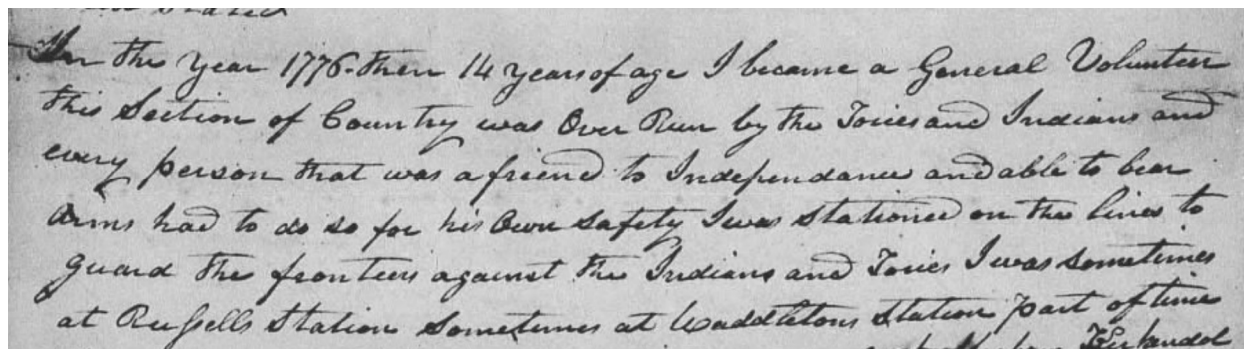 States
In the Year 1776 then 14 years of age I became a General Volunteer
this Section of Country was Over Run by the Tories and Indians and
every person that was a friend to Independance and able to bear
arms had to do so for his Own Safety I was Stationed on the lines to
guard the frontiers against the Indians and Tories I was Sometimes
at Russells Station Sometimes at Waddletons Station part of time